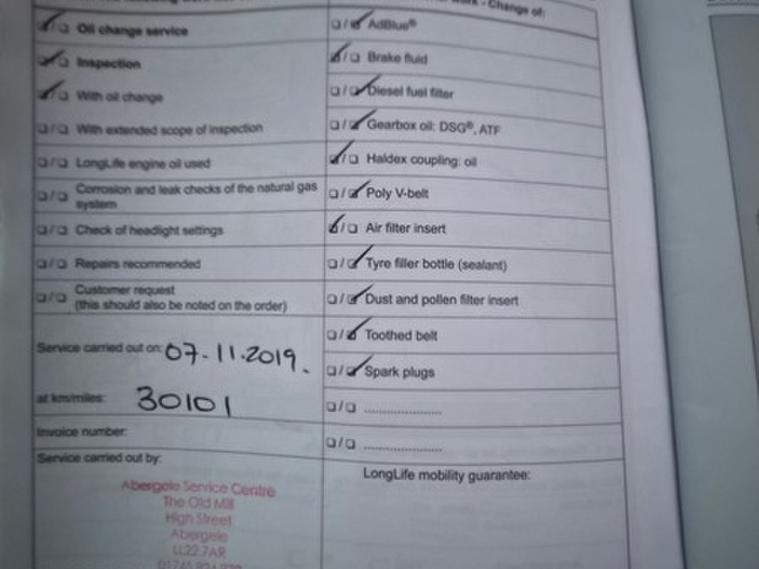 Change of:
Oil change service
AdBlue®
Inspection
Brake fluid
With oil change
Diesel fuel filter
With extended scope of inspection
Gearbox oil: DSG®, ATF
LongLife engine oil used
Haldex coupling: oil
Corrosion and leak checks of the natural gas
system
Poly V-belt
Check of headlight settings
Air filter insert
Repairs recommended
Tyre filler bottle (sealant)
Customer request
(this should also be noted on the order)
Dust and pollen filter insert
Toothed belt
Service carried out on: 07.11.2019.
Spark plugs
at km/miles: 30101
Invoice number:
Service carried out by:
LongLife mobility guarantee:
Abergele Service Centre
The Old Mill
High Street
Abergele
LL22 7AR